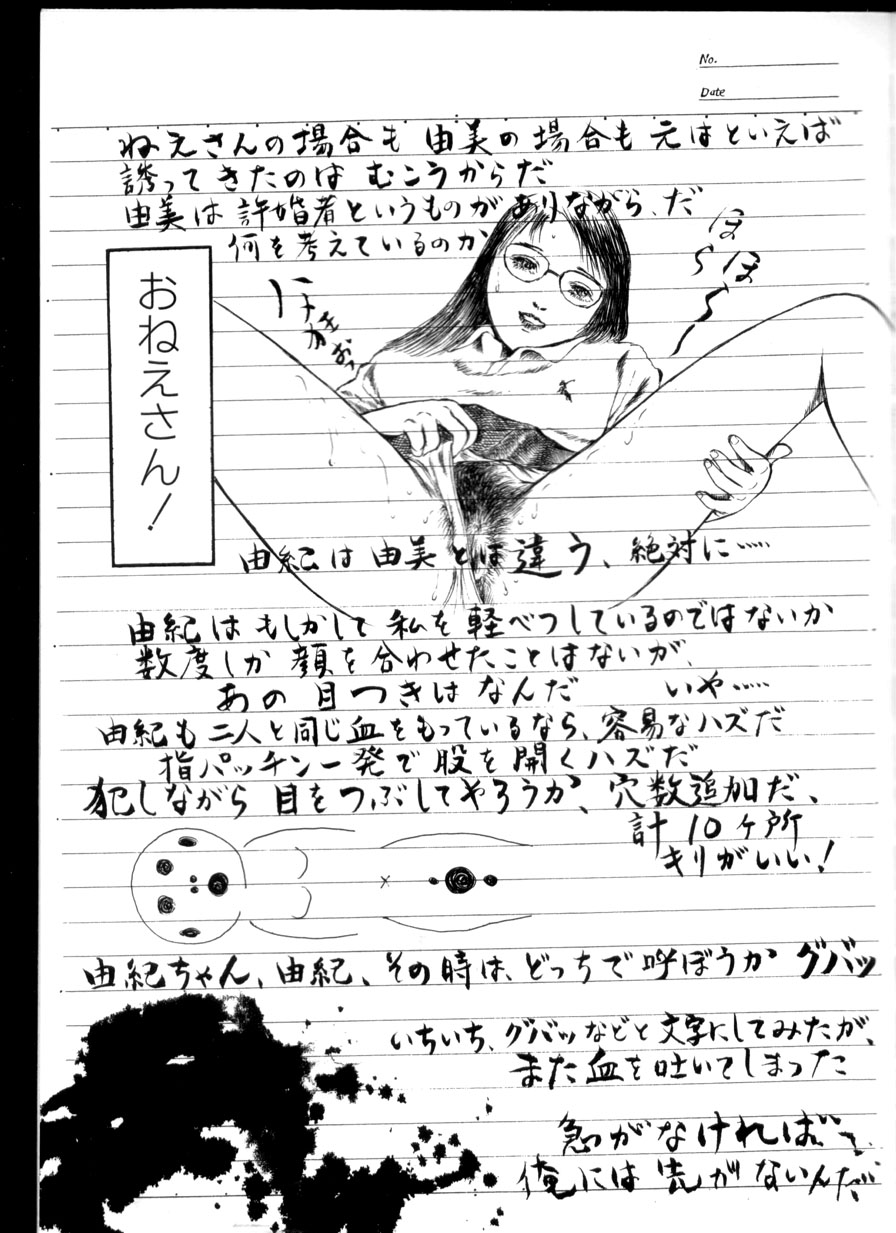 No.
Date
ねえさんの場合も 由美の場合も 元はといえば
誘ってきたのは むこうからだ
由美は 許婚者というものが ありながら、だ
何を考えているのか
ほ〜ほ〜
おねえさん！
由紀は 由美とは違う、絶対に……
由紀はもしかして 私を 軽べつしているのではないか
数度しか 顔を合わせたことはないが、
あの目つきはなんだ いや……
由紀も二人と同じ血をもっているなら、容易なハズだ
指パッチン一発で 股を開くハズだ
犯しながら 目をつぶしてやろうか、穴数追加だ、
計 10ヶ所
キリがいい！
由紀ちゃん、由紀、その時は、どっちで呼ぼうか グバッ
いちいち、グバッなどと文字にしてみたが、
また血を吐いてしまった
急がなければ…
俺には先がないんだ…